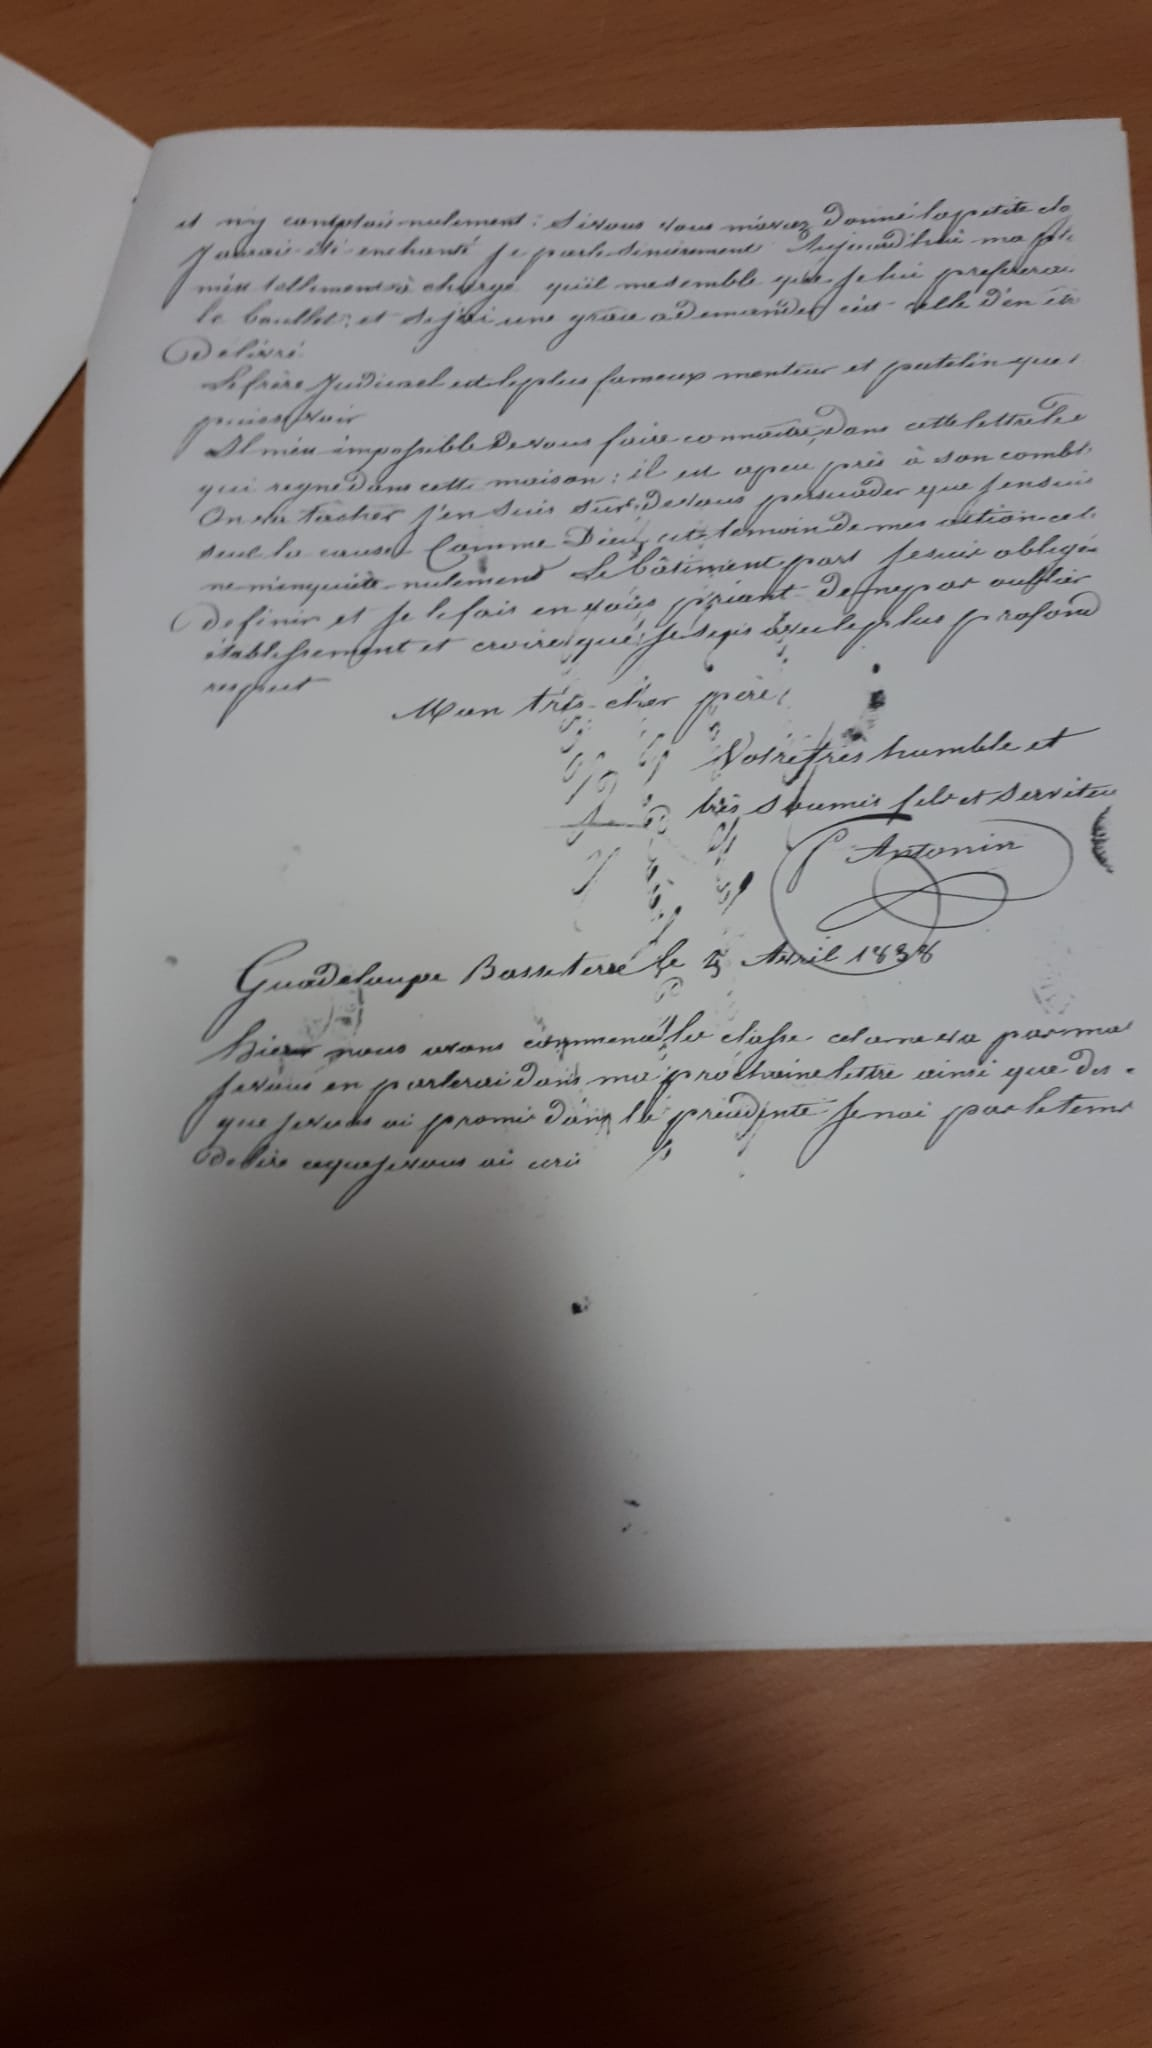 et n'y comptais nulement: si vous vous m'aviez donné la petite cla
J'aurais été enchanté je parle sincèrement Aujourd'hui ma
m'est tellement à charge qu'il me semble que je lui prefererai
le boullet: et si j'ai une grâce a demander c'est celle d'en êt
Délivré
Le frère Judicael est le plus fameux menteur et patelin que
puisse voir
Il m'est impossible de vous faire connaître dans cette lettre le
qui regne dans cette maison: il est apeu près à son combl
On va tâcher j'en suis sur, de vous persuader que j'en suis
seul la cause. Comme Dieu est temoin de mes action cel
ne m'enquiète nulement Le bâtiment part Je suis obligé
De finir et je le fais en vous priant de ne pas oublier
établissement et croire que je suis avec le plus profond
respect
Mon très cher père,
Votre très humble et
très soumis fils et serviteu
f Antonin
Guadeloupe Basseterre le 5 Avril 1838
hier nous avons commencé la classe cela ne va pas mal
Je vous en parlerai dans ma prochaine lettre ainsi que des
que je vous ai promis dans la précédente Je nai pas le tems
De lire ceque je vous ai ecri